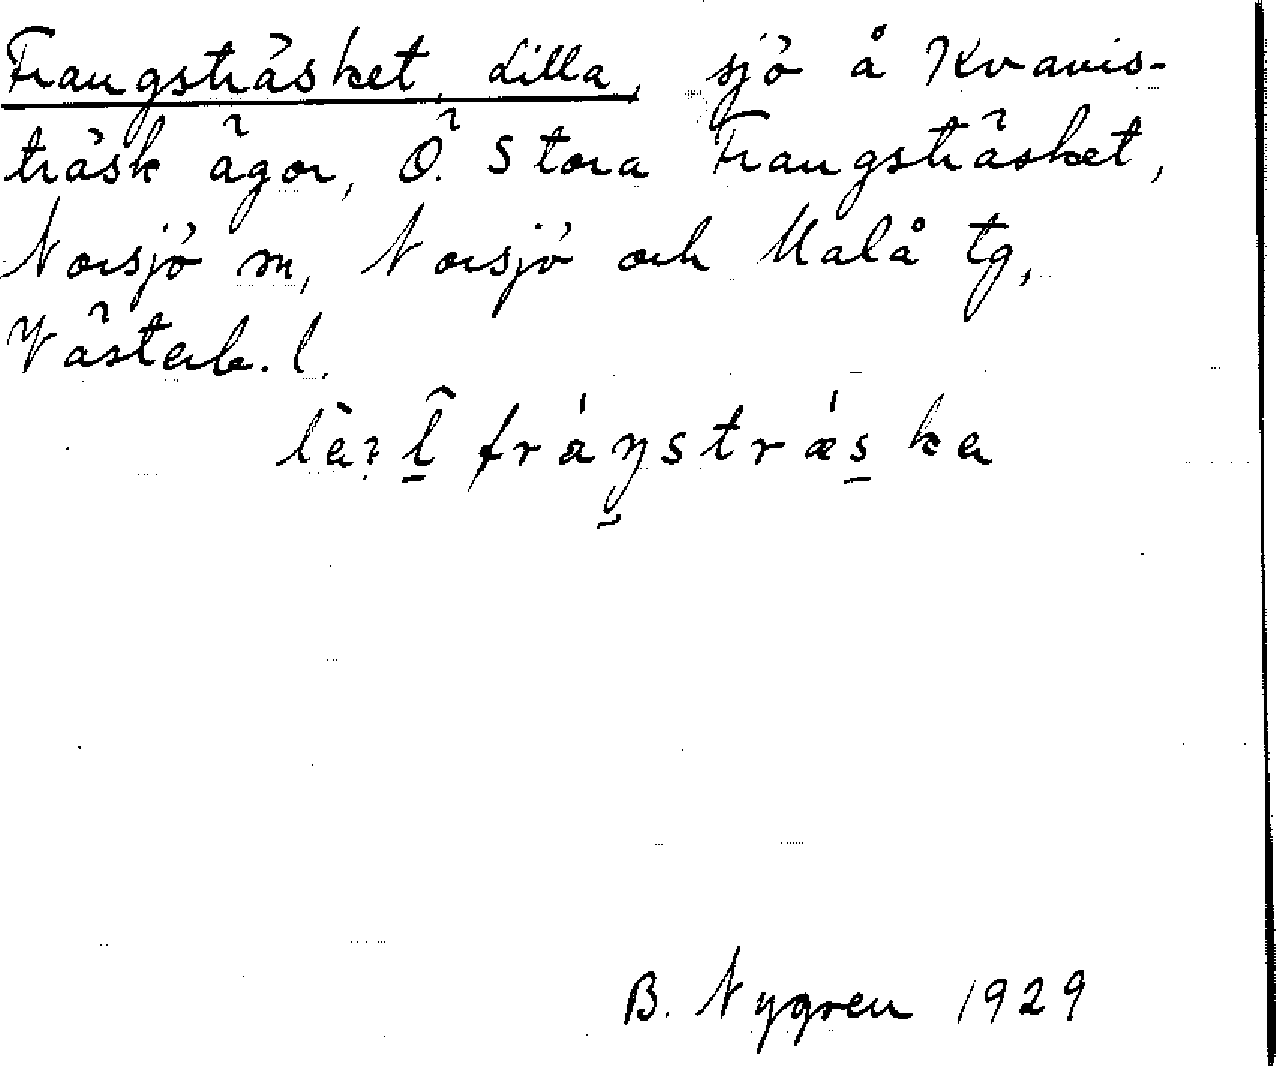 Frangsträsket, Lilla, sjö å Kvavis-
träsk ägor, Ö. Stora Frangsträsket,
Norsjö sn, Norsjö och Malå tg,
Västerb. l.
fráŋstræska
B. Nygren 1929